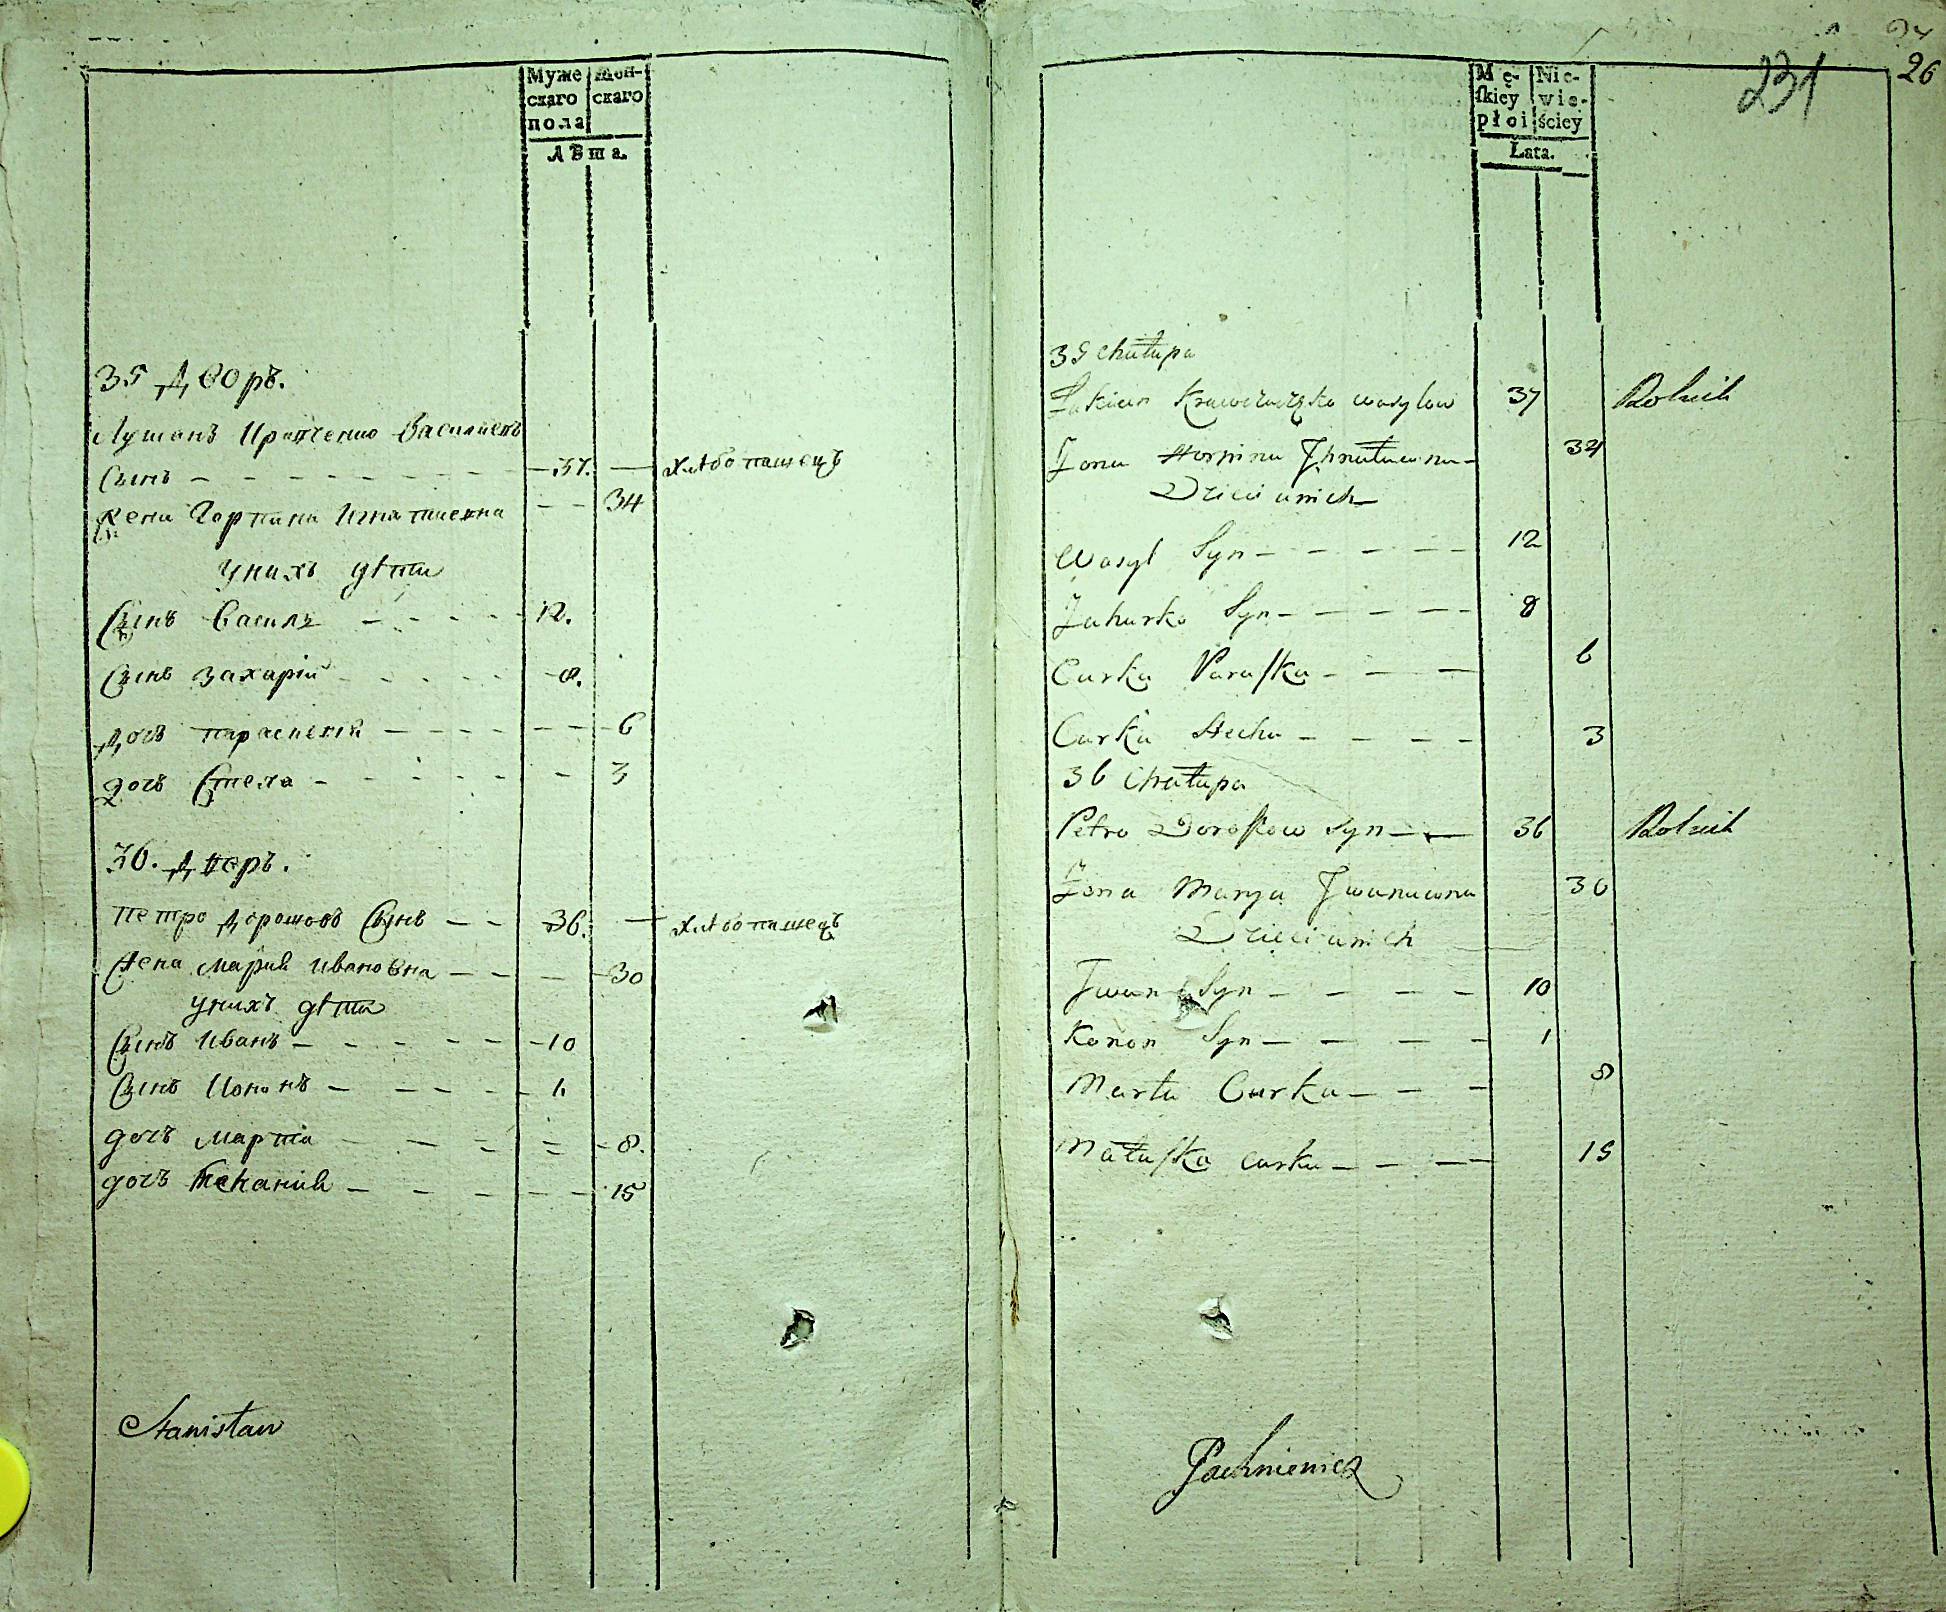 Муже
скаго
пола
Жен-
скаго
Лѣта.
35 Дворъ.
Василиевъ
Сынъ - - - - - - 37. — хлѣбопашецъ
Жена Горпина Игнатиевна - - 34
У нихъ дѣти
Сынъ Василь - - - - 12.
Сынъ Захарій - - - - 8.
Дочь Параскевія - - - - - 6
дочь Стеха - - - - - - 3
36. Дворъ.
Петро Дорошовъ Сынъ - - 36. — хлѣбопашецъ
Жена Мария Ивановна - - - - 30
у нихъ дѣти
Сынъ Иванъ - - - - - 10
Сынъ Кононъ - - - - - 1.
дочь Марта - - - - - 8.
дочь - - - - - 15
Stanisław
231
26
Mę-
skiey
płoi
Nie-
wie-
ściey
Łata.
35 Chałupa
Łukian wasylow 37 Rolnik
Żona Horpina Jhnatowna - 34
Dzieci unich
Wasyl Syn - - - - - 12
Zaharko Syn - - - - - 8
Curka Paraska - - - 6
Curka Stecha - - - - 3
36 Chałupa
Petro Doroszow Syn - - 36 Rolnik
Żona Marya Jwanowna 30
Dzieci unich
Jwan Syn - - - - 10
Konon Syn - - - - - 1
Marta Curka - - - 8
curka - - - - 15